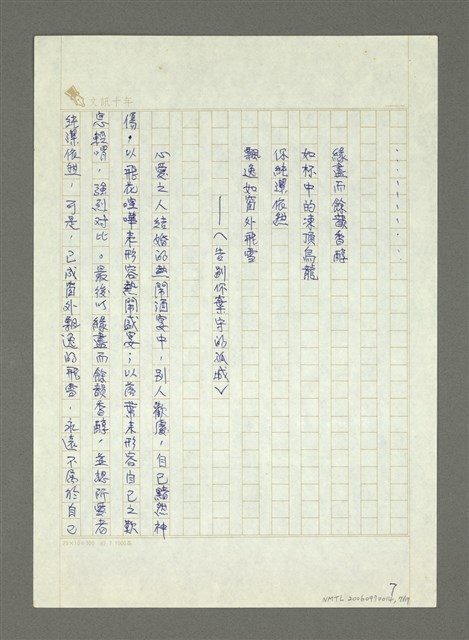 ⋯⋯⋯⋯
緣盡而餘韻香醇
如杯中的凍頂烏龍
你純潔依然
飄逸如窗外飛雪
——〈告別你棄守的孤城〉
心愛之人結婚的熱鬧酒宴中，別人歡慶，自己黯然神
傷，以飛花喧嘩來形容熱鬧盛宴；以落葉來形容自己之歎
息輕喟，強烈對比。最後以緣盡而餘韻香醇，並認所愛者
純潔依然，可是，已成窗外飄逸的飛雪，永遠不屬於自己
文訊十年
7
NMTL 20060970016, 7/19